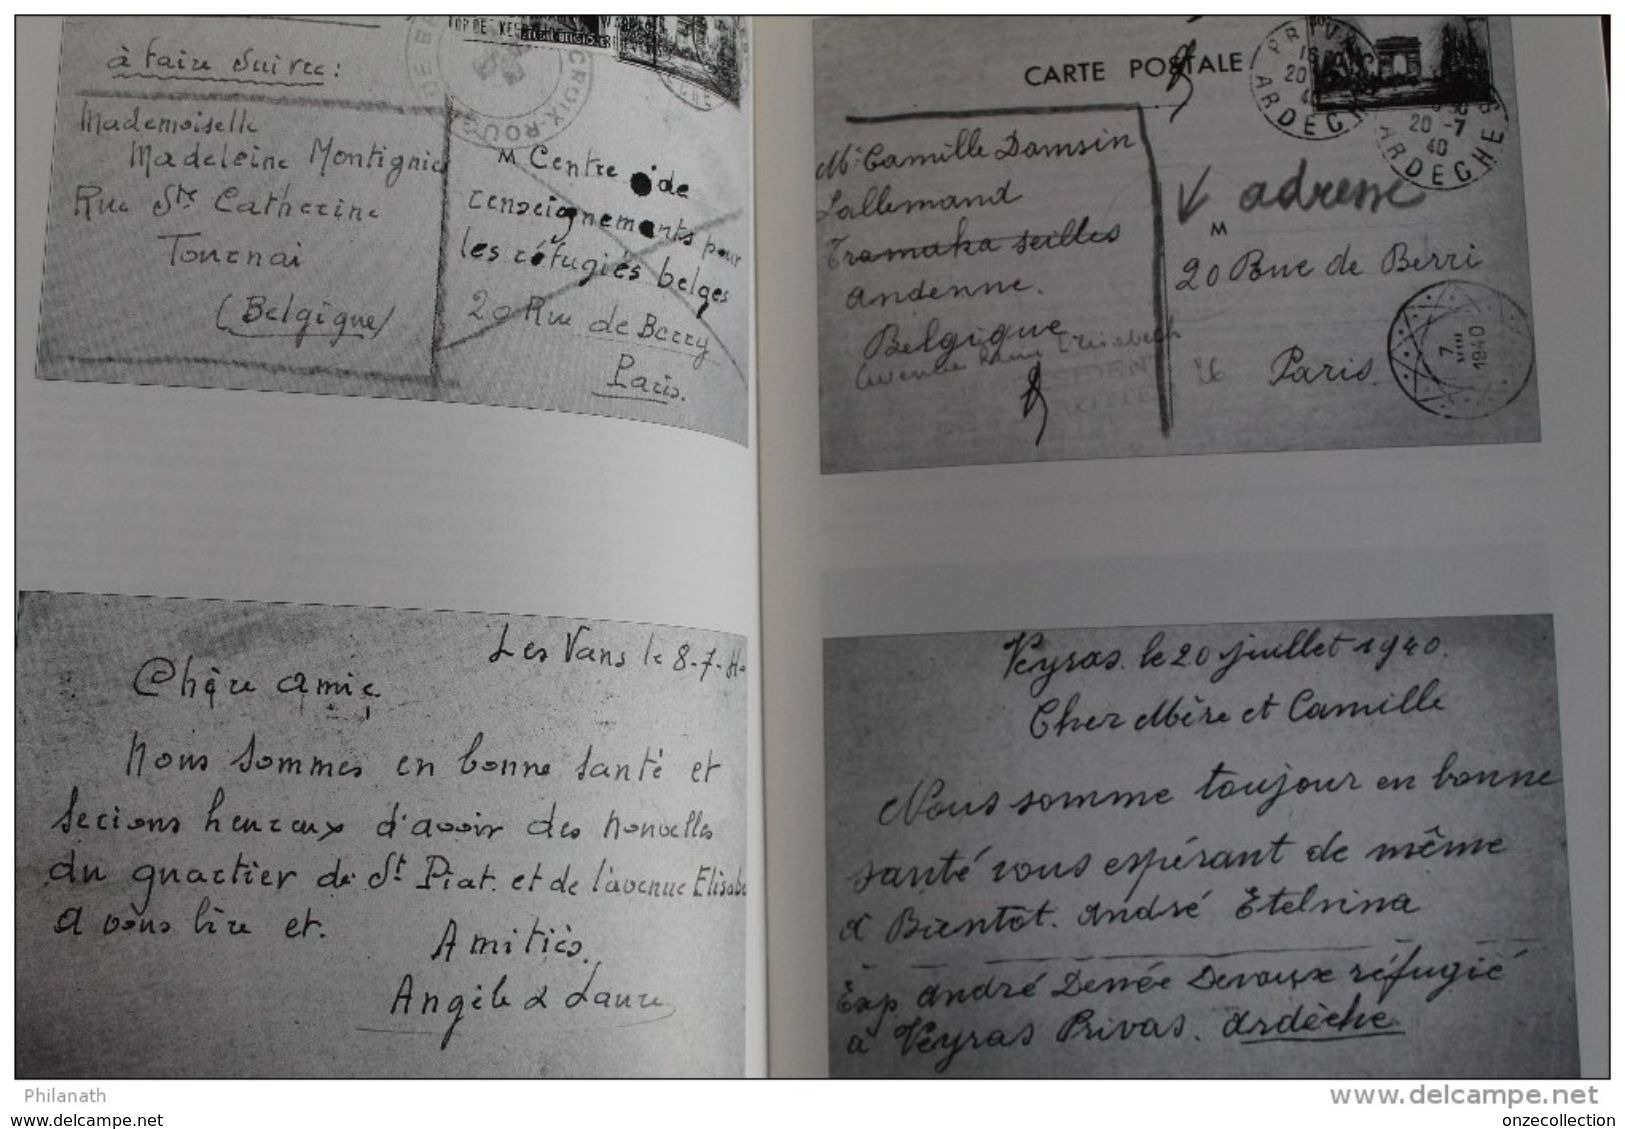 à faire suivre:
CROIX-ROUG
Mademoiselle
Madeleine Montignie
Rue Ste Catherine
Tournai
(Belgique)
M Centre de
renseignements pour
les réfugiés belges
20 Rue de Berry
Paris.
Les Vans le 8-7-40
Chère amie
Nous sommes en bonne santé et
serions heureux d'avoir des nouvelles
du quartier de St Piat et de l'avenue Elisabe
A vous lire et.
Amitiés.
Angèle & Laure
CARTE POSTALE
PRIVAS
20
ARDECHE
20 -7
40
ARDECHE
Mr Camille Damsin
Lallemand
Tramaka seilles
andenne.
Belgique
V adresse
M
20 Rue de Berri
Paris
7
VIII
1940
Veyras. le 20 juillet 1940.
Cher Mère et Camille
Nous somme toujour en bonne
santé vous espérant de même
a Bientot. André Etelvina
Exp André Denée Devaux réfugié
a Veyras Privas. Ardèche
Philanath
www.delcampe.net
my own original picture
onzecollection